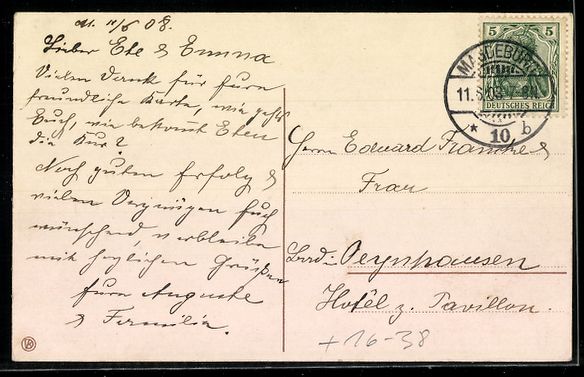 M. 11/6 08.
Lieber Ete & Emma
Vielen Dank für Eure
freundliche Karte, wie geht's
Euch, wie bekommt Eten
die Kur?
Noch guten Erfolg &
vielen Vergnügen Euch
wünschend, verbleibe
mit herzlichen Grüßen
Eure Auguste
& Familie.
5 5
DEUTSCHES REICH
MAGDEBURG
11.6.08 7-8N.
* 10 b
Herrn Edward Francke &
Frau
Bad Oeynhausen
Hotêl z. Pavillon.
+16-38